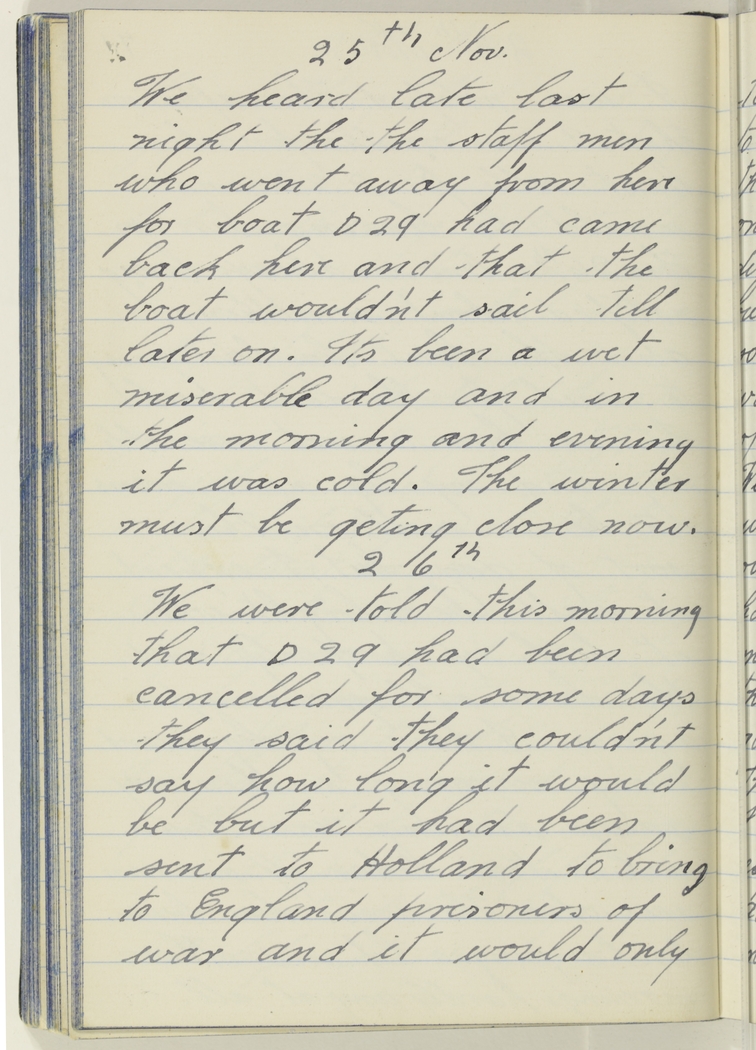 25th Nov.
We heard late last
night the the staff men
who went away from here
for boat D29 had came
back here and that the
boat wouldn't sail till
later on. Its been a wet
miserable day and in
the morning and evening
it was cold. The winter
must be geting close now.
26th
We were told this morning
that D29 had been
cancelled for some days
they said they couldn't
say how long it would
be but it had been
sent to Holland to bring
to England prisoners of
war and it would only